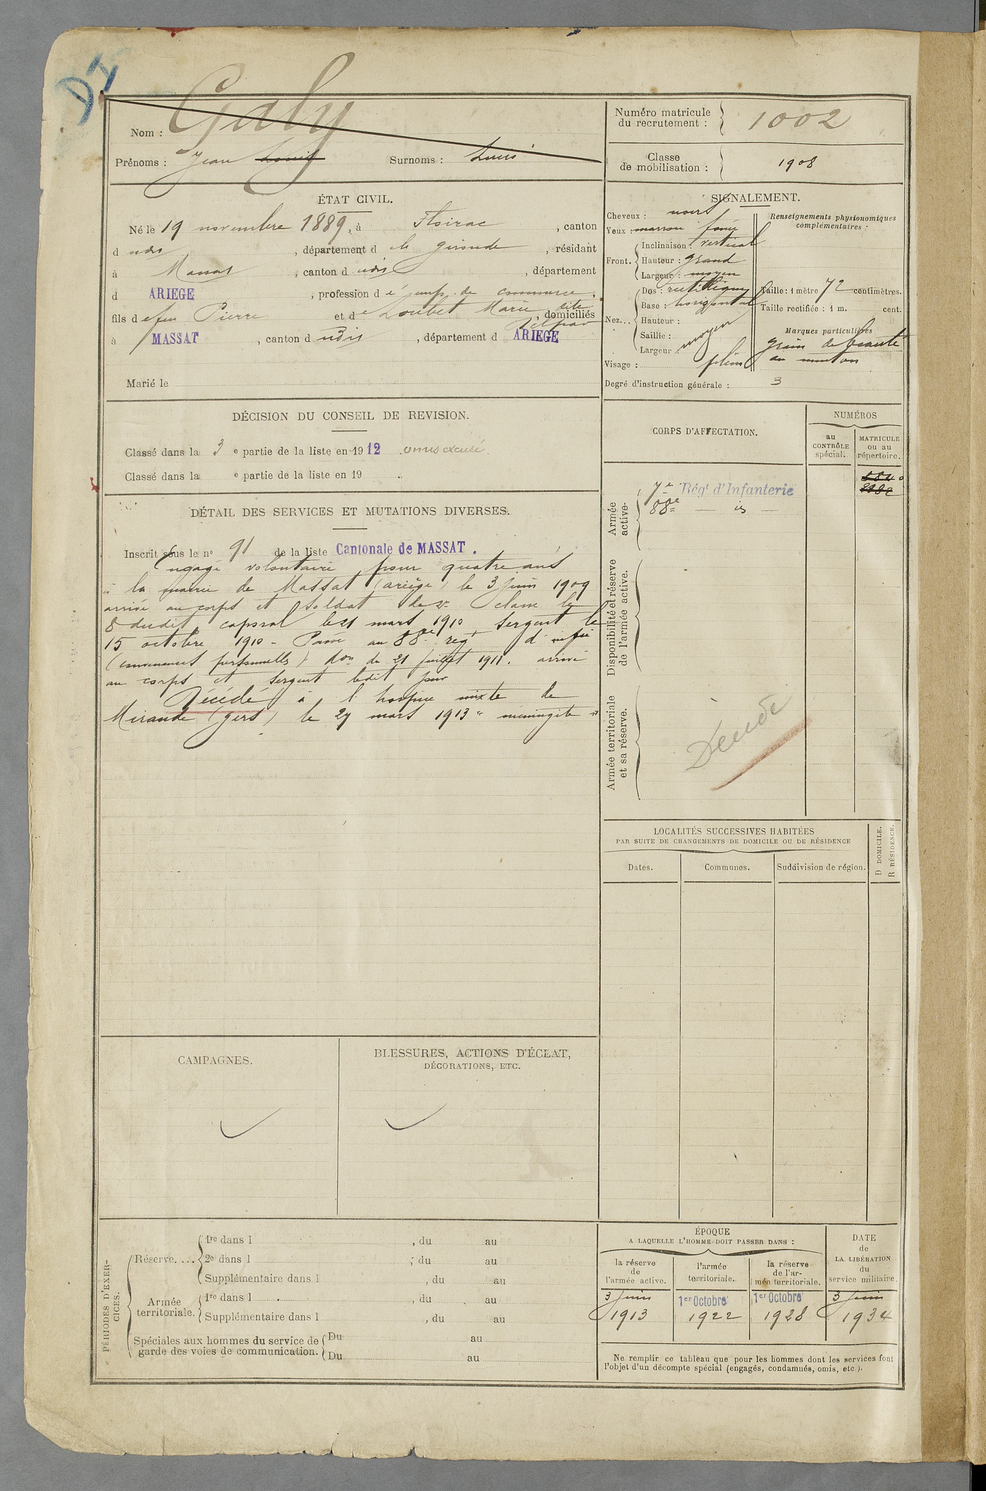 DI
Nom : Galy
Prénoms : Jean Louis Surnoms : Louis
Numéro matricule du recrutement : 1002
Classe de mobilisation : 1908
ÉTAT CIVIL.
Né le 19 novembre 1889, à Floirac, canton
d udis, département d e la gironde, résidant
à Massat, canton d udis, département
d ARIEGE, profession d' empl. de commerce,
fils d e feu Pierre et d e Loubet Marie, domiciliés
à MASSAT, canton d udis, département d ARIEGE
Marié le
SIGNALEMENT.
Cheveux : noirs
Yeux : marron foncé
Front. Inclinaison : vertical
Hauteur : grand
Largeur : moyen
Nez... Dos : rectiligne
Base : horizontal
Hauteur :
Saillie :
Largeur : moyen
Visage : plein
Degré d'instruction générale : 3
Renseignements physionomiques complémentaires :
Taille : 1 mètre 72 centimètres.
Taille rectifiée : 1 m. cent.
Marques particulières
grain de beauté
au menton
DÉCISION DU CONSEIL DE REVISION.
Classé dans la 3 e partie de la liste en 1912 omis excusé
Classé dans la e partie de la liste en 19 .
DÉTAIL DES SERVICES ET MUTATIONS DIVERSES.
Inscrit sous le n° 91 de la liste Cantonale de MASSAT.
Engagé volontaire pour quatre ans
à la mairie de Massat (ariège) le 3 juin 1909
arrivé au corps et soldat de 2e classe le
8 dudit caporal le 21 mars 1910 sergent le
15 octobre 1910 - Passé au 88e regt d'infie
(convenances personnelles) don du 21 juillet 1911. arrivé
au corps et sergent ledit jour
Décédé à l'hospice mixte de
Mirande (gers) le 27 mars 1913 "méningite"
CORPS D'AFFECTATION.
NUMÉROS
au CONTRÔLE spécial.
MATRICULE ou au répertoire.
Armée active.
7e Régt d'Infanterie
88e — is —
Disponibilité et réserve de l'armée active.
Armée territoriale et sa réserve.
Décédé
LOCALITÉS SUCCESSIVES HABITÉES
PAR SUITE DE CHANGEMENTS DE DOMICILE OU DE RÉSIDENCE
Dates.
Communes.
Subdivision de région.
D DOMICILE.
R RÉSIDENCE.
CAMPAGNES.
BLESSURES, ACTIONS D'ÉCLAT,
DÉCORATIONS, ETC.
PÉRIODES D'EXERCICES.
Réserve.... 1re dans l , du au
2e dans l , du au
Supplémentaire dans l , du au
Armée territoriale. 1re dans l , du au
Supplémentaire dans l , du au
Spéciales aux hommes du service de garde des voies de communication. Du au
Du au
ÉPOQUE
A LAQUELLE L'HOMME DOIT PASSER DANS :
la réserve de l'armée active.
l'armée territoriale.
la réserve de l'armée territoriale.
DATE de LA LIBÉRATION du service militaire.
3 juin 1913
1er Octobre 1922
1er Octobre 1928
3 juin 1934
Ne remplir ce tableau que pour les hommes dont les services font
l'objet d'un décompte spécial (engagés, condamnés, omis, etc.).